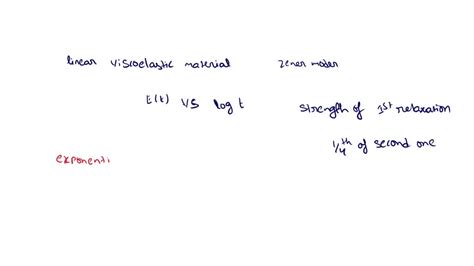 linear viscoelastic material zener model
E(t) vs log t
strength of 1st relaxation
1/4th of second one
exponenti